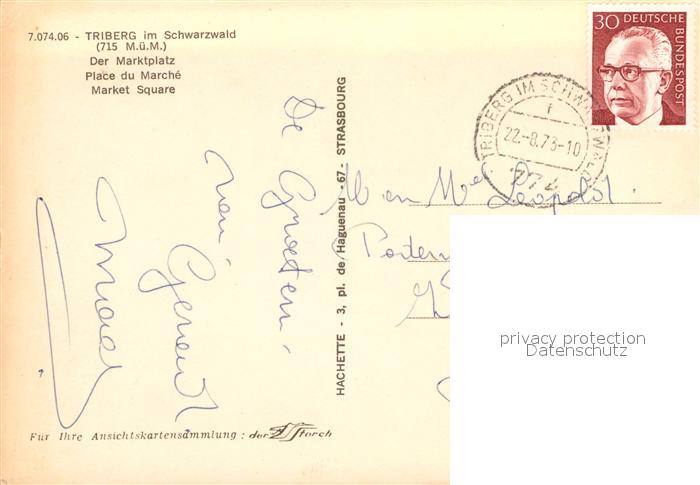 7.074.06 - TRIBERG im Schwarzwald
(715 M.ü.M.)
Der Marktplatz
Place du Marché
Market Square
30 DEUTSCHE BUNDESPOST
TRIBERG IM SCHWARZWALD
f
22.-8.73-10
774
HACHETTE - 3, pl. de Haguenau - 67 - STRASBOURG
De Groeten
van
M en Me Leopold.
privacy protection
Datenschutz
Für Ihre Ansichtskartensammlung : der Storch